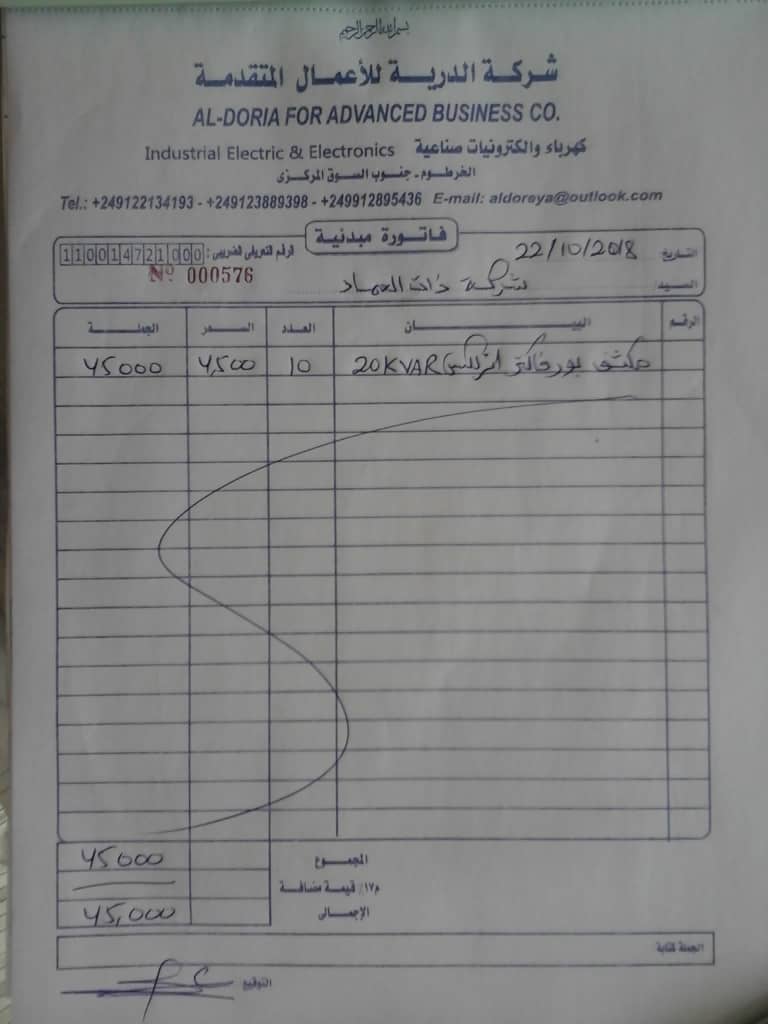 بسم الله الرحمن الرحيم
شركة الدرية للأعمال المتقدمة
AL-DORIA FOR ADVANCED BUSINESS CO.
Industrial Electric & Electronics كهرباء والكترونيات صناعية
الخرطوم - جنوب السوق المركزى
Tel.: +249122134193 - +249123889398 - +249912895436 E-mail: aldoreya@outlook.com
فاتورة مبدئية
التاريخ 22/10/2018
الرقم التعريفى الضريبى: 110014721000
السيد شركة ذات العماد
Nº 000576
الرقم البيـــان العدد السعر الجملة
مكثف بورفاكتر 20KVAR 10 4,500 45000
المجموع 45000
١٧٪ قيمة مضافة
الإجمالى 45,000
الجملة كتابة
التوقيع